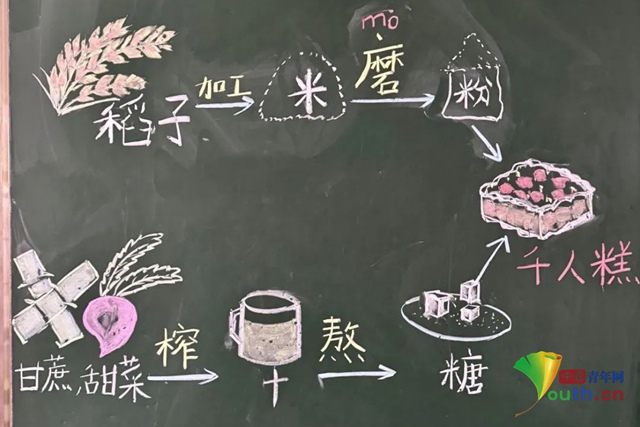 mò
稻子 加工 米 磨 粉
千人糕
甘蔗 甜菜 榨 十 熬 糖
中国青年网
Youth.cn